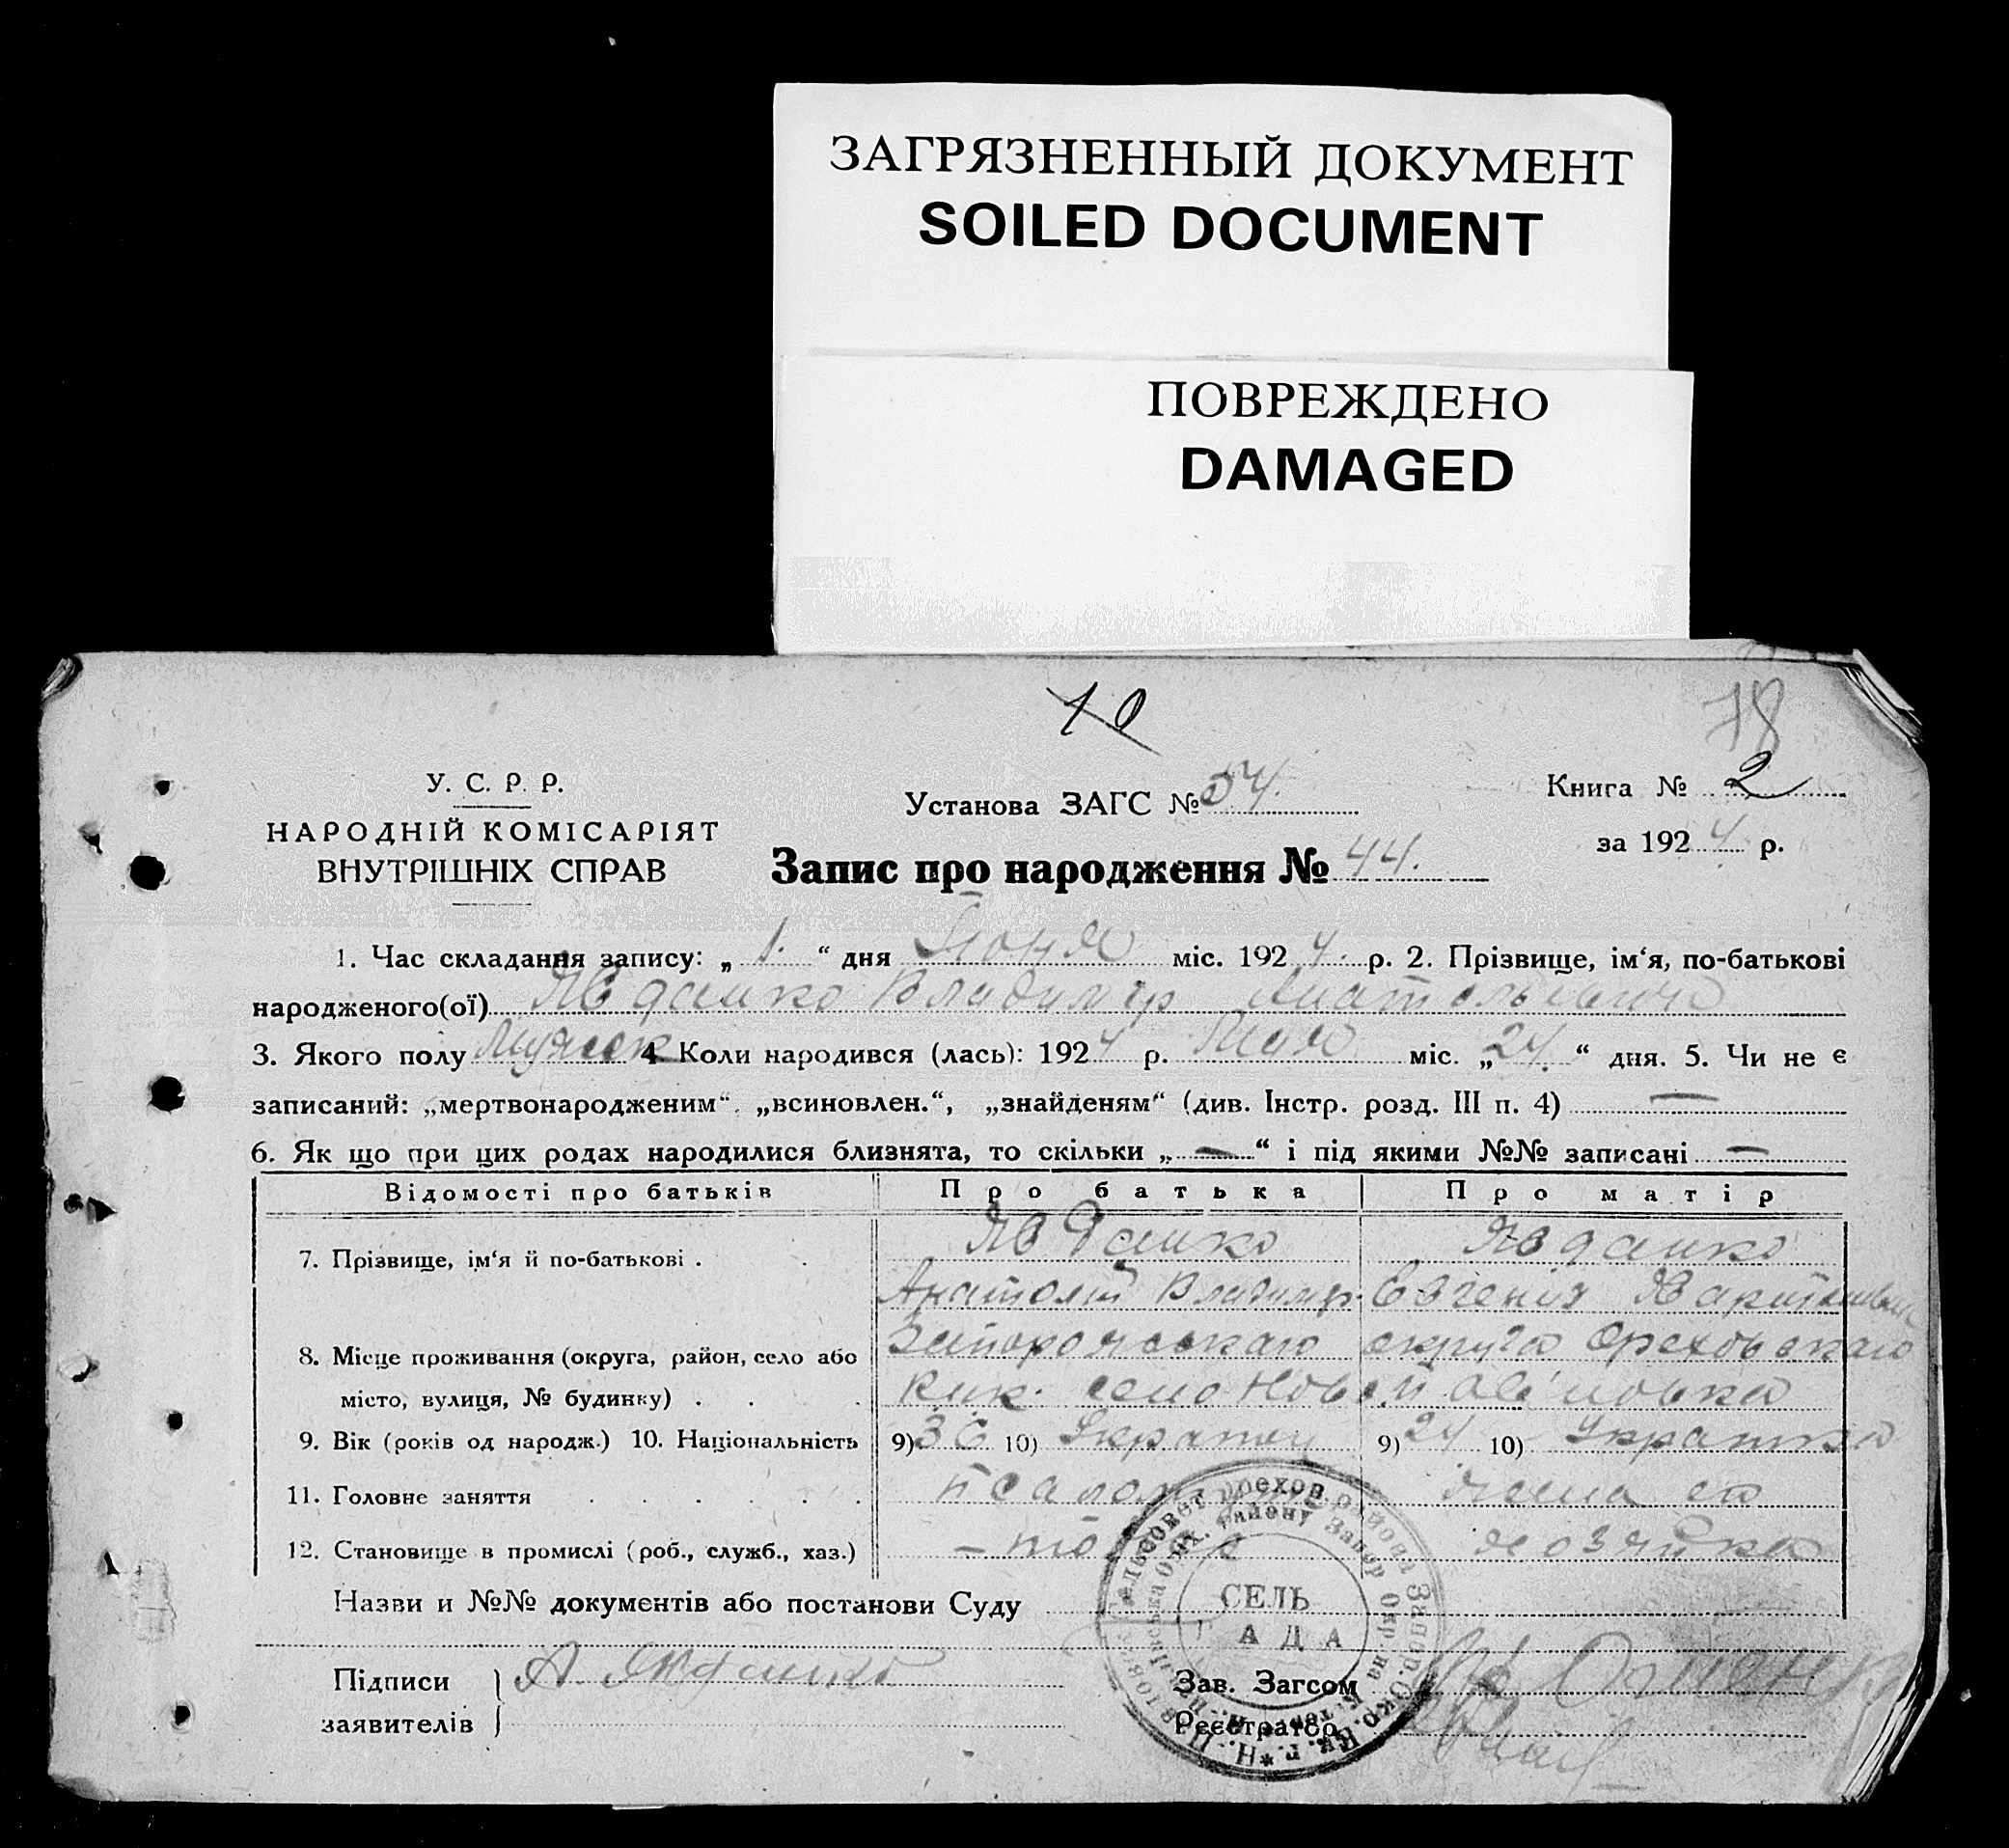 ЗАГРЯЗНЕННЫЙ ДОКУМЕНТ
SOILED DOCUMENT
ПОВРЕЖДЕНО
DAMAGED
10
78
У. С. Р. Р.
НАРОДНІЙ КОМІСАРІЯТ
ВНУТРІШНІХ СПРАВ
Установа ЗАГС № 54.
Книга № 2
за 1924 р.
Запис про народження № 44.
1. Час складання запису: „ 1. “ дня Июня міс. 1924. р. 2. Прізвище, ім‘я, по-батькові
народженого(ої) Явдашко Владимир Анатольевич
3. Якого полу Мужск 4 Коли народився (лась): 1924 р. Мая міс. „ 24. “ дня. 5. Чи не є
записаний: „мертвонародженим“, „всиновлен.“, „знайденям“ (див. Інстр. розд. III п. 4) —
6. Як що при цих родах народилися близнята, то скільки „ — “ і під якими №№ записані —
Відомості про батьків Про батька Про матір
7. Прізвище, ім‘я й по-батькові . . Явдашко Явдашко
Анатолий Владимир. Евгения
8. Місце проживання (округа, район, село або Запорожскаго округа Ореховскаго
місто, вулиця, № будинку) . . . село
9. Вік (років од народж.) 10. Національність 9) 36 10) Украинец 9) 24 10) Украинка
11. Головне заняття . . . . . .
12. Становище в промислі (роб., служб., хаз.) хозяйка
Назви и №№ документів або постанови Суду
СЕЛЬ
АДА
Підписи А. Явдашко
заявителів
Зав. Загсом
Реєстратор